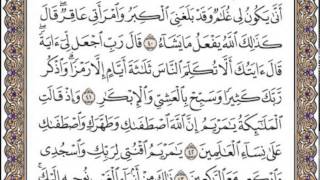 أَنَّىٰ يَكُونُ لِي غُلَٰمٌ وَقَدْ بَلَغَنِيَ ٱلْكِبَرُ وَٱمْرَأَتِي عَاقِرٌ قَالَ
كَذَٰلِكَ ٱللَّهُ يَفْعَلُ مَا يَشَآءُ ٤٠ قَالَ رَبِّ ٱجْعَل لِّيٓ ءَايَةً
قَالَ ءَايَتُكَ أَلَّا تُكَلِّمَ ٱلنَّاسَ ثَلَٰثَةَ أَيَّامٍ إِلَّا رَمْزًا وَٱذْكُر
رَّبَّكَ كَثِيرًا وَسَبِّحْ بِٱلْعَشِيِّ وَٱلْإِبْكَٰرِ ٤١ وَإِذْ قَالَتِ
ٱلْمَلَٰٓئِكَةُ يَٰمَرْيَمُ إِنَّ ٱللَّهَ ٱصْطَفَىٰكِ وَطَهَّرَكِ وَٱصْطَفَىٰكِ
عَلَىٰ نِسَآءِ ٱلْعَٰلَمِينَ ٤٢ يَٰمَرْيَمُ ٱقْنُتِي لِرَبِّكِ وَٱسْجُدِي